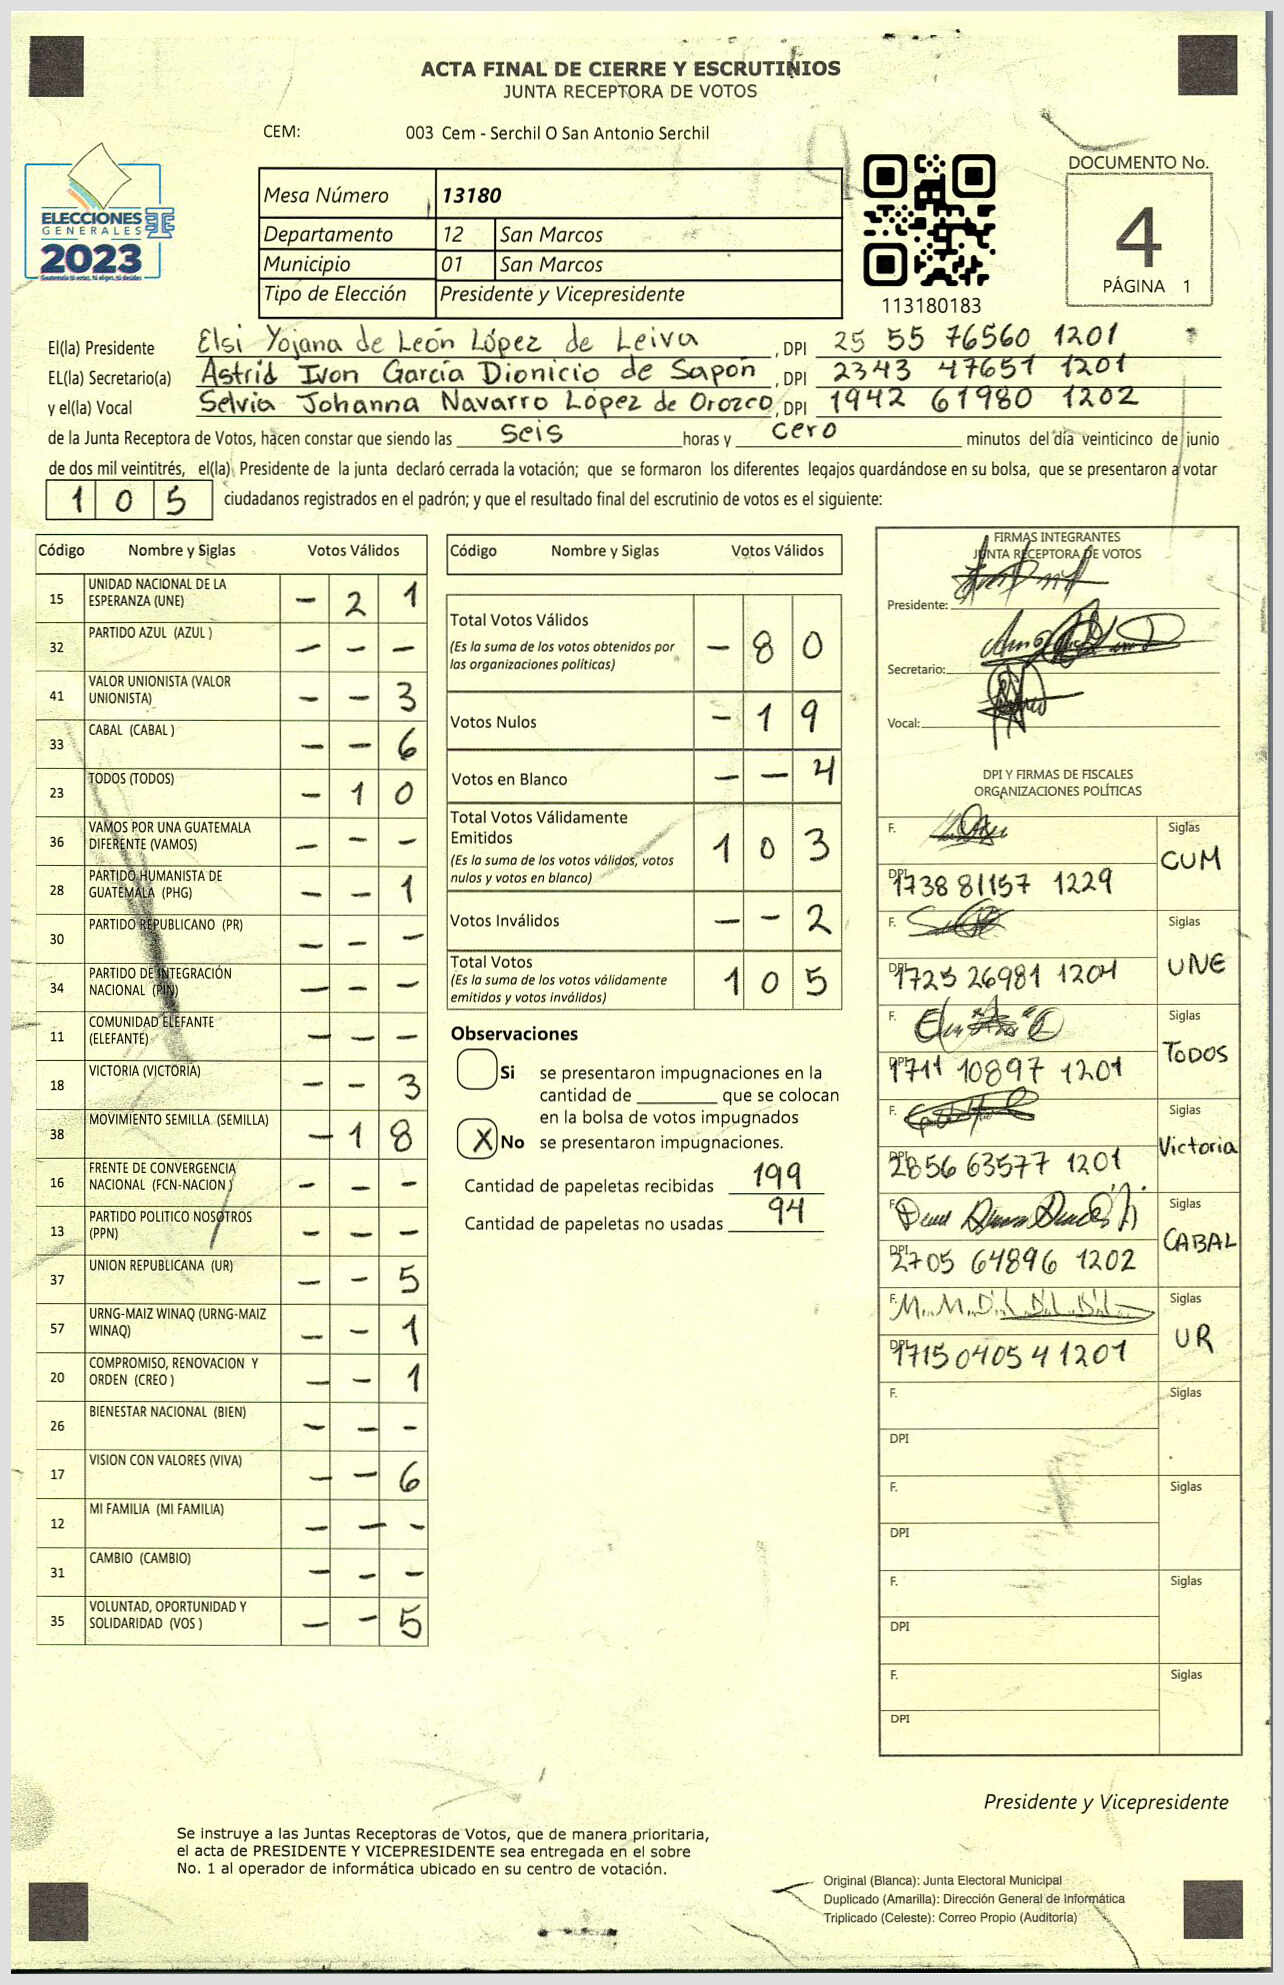 ACTA FINAL DE CIERRE Y ESCRUTINIOS
JUNTA RECEPTORA DE VOTOS
CEM: 003 Cem - Serchil O San Antonio Serchil
ELECCIONES
GENERALES
2023
Mesa Número 13180
Departamento 12 San Marcos
Municipio 01 San Marcos
Tipo de Elección Presidente y Vicepresidente
113180183
DOCUMENTO No.
4
PÁGINA 1
El(la) Presidente Elsi Yojana de León López de Leiva, DPI 25 55 76560 1201
EL(la) Secretario(a) Astrid Ivon García Dionicio de Sapón, DPI 2343 47651 1201
y el(la) Vocal Selvia Johanna Navarro López de Orozco, DPI 1942 61980 1202
de la Junta Receptora de Votos, hacen constar que siendo las seis horas y cero minutos del día veinticinco de junio
de dos mil veintitrés, el(la) Presidente de la junta declaró cerrada la votación; que se formaron los diferentes legajos guardándose en su bolsa, que se presentaron a votar
105 ciudadanos registrados en el padrón; y que el resultado final del escrutinio de votos es el siguiente:
Código Nombre y Siglas Votos Válidos
15 UNIDAD NACIONAL DE LA ESPERANZA (UNE) - 2 1
32 PARTIDO AZUL (AZUL ) - - -
41 VALOR UNIONISTA (VALOR UNIONISTA) - - 3
33 CABAL (CABAL ) - - 6
23 TODOS (TODOS) - 1 0
36 VAMOS POR UNA GUATEMALA DIFERENTE (VAMOS) - - -
28 PARTIDO HUMANISTA DE GUATEMALA (PHG) - - 1
30 PARTIDO REPUBLICANO (PR) - - -
34 PARTIDO DE INTEGRACIÓN NACIONAL (PIN) - - -
11 COMUNIDAD ELEFANTE (ELEFANTE) - - -
18 VICTORIA (VICTORIA) - - 3
38 MOVIMIENTO SEMILLA (SEMILLA) - 1 8
16 FRENTE DE CONVERGENCIA NACIONAL (FCN-NACION ) - - -
13 PARTIDO POLITICO NOSOTROS (PPN) - - -
37 UNION REPUBLICANA (UR) - - 5
57 URNG-MAIZ WINAQ (URNG-MAIZ WINAQ) - - 1
20 COMPROMISO, RENOVACION Y ORDEN (CREO ) - - 1
26 BIENESTAR NACIONAL (BIEN) - - -
17 VISION CON VALORES (VIVA) - - 6
12 MI FAMILIA (MI FAMILIA) - - -
31 CAMBIO (CAMBIO) - - -
35 VOLUNTAD, OPORTUNIDAD Y SOLIDARIDAD (VOS ) - - 5
Código Nombre y Siglas Votos Válidos
Total Votos Válidos - 8 0
(Es la suma de los votos obtenidos por
las organizaciones políticas)
Votos Nulos - 1 9
Votos en Blanco - - 4
Total Votos Válidamente
Emitidos 1 0 3
(Es la suma de los votos válidos, votos
nulos y votos en blanco)
Votos Inválidos - - 2
Total Votos 1 0 5
(Es la suma de los votos válidamente
emitidos y votos inválidos)
Observaciones
Si se presentaron impugnaciones en la
cantidad de ________ que se colocan
en la bolsa de votos impugnados
X No se presentaron impugnaciones.
Cantidad de papeletas recibidas 199
Cantidad de papeletas no usadas 94
FIRMAS INTEGRANTES
JUNTA RECEPTORA DE VOTOS
Presidente:
Secretario:
Vocal:
DPI Y FIRMAS DE FISCALES
ORGANIZACIONES POLÍTICAS
F. Siglas
CUM
DPI 1738 81157 1229
F. Siglas
UNE
DPI 1725 26981 1204
F. Siglas
TODOS
DPI 1711 10897 1201
F. Siglas
Victoria
DPI 2856 63577 1201
F. Siglas
CABAL
DPI 2705 64896 1202
F. Siglas
UR
DPI 1715 04054 1201
F. Siglas
DPI
F. Siglas
DPI
F. Siglas
DPI
F. Siglas
DPI
Presidente y Vicepresidente
Se instruye a las Juntas Receptoras de Votos, que de manera prioritaria,
el acta de PRESIDENTE Y VICEPRESIDENTE sea entregada en el sobre
No. 1 al operador de informática ubicado en su centro de votación.
Original (Blanca): Junta Electoral Municipal
Duplicado (Amarilla): Dirección General de Informática
Triplicado (Celeste): Correo Propio (Auditoría)